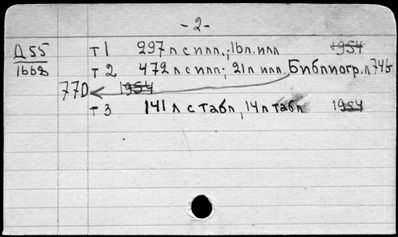 - 2 -
Д55 т 1 297 л с илл.; 16л. илл 1954
1668 т 2 472 л с илл; 21л илл, Библиогр. л
770 1954
т 3 141 л с табл, 14л табл 1954